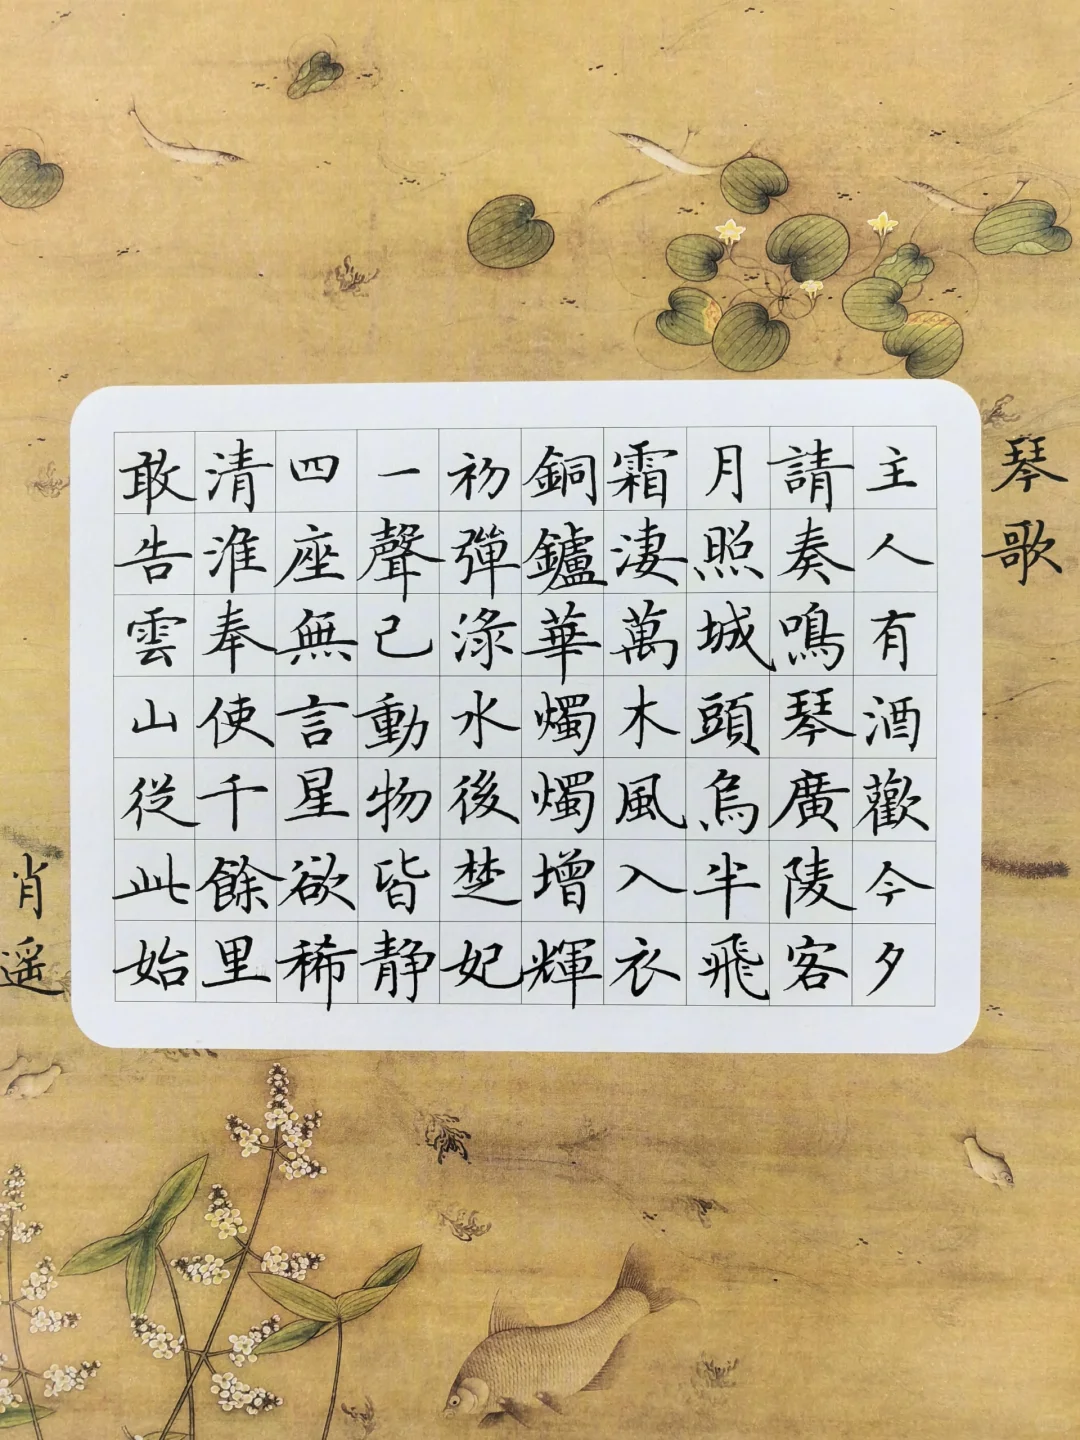 琴歌
主人有酒歡今夕
請奏鳴琴廣陵客
月照城頭烏半飛
霜淒萬木風入衣
銅鑪華燭燭增輝
初彈淥水後楚妃
一聲已動物皆静
四座無言星欲稀
清淮奉使千餘里
敢告雲山從此始
肖遥